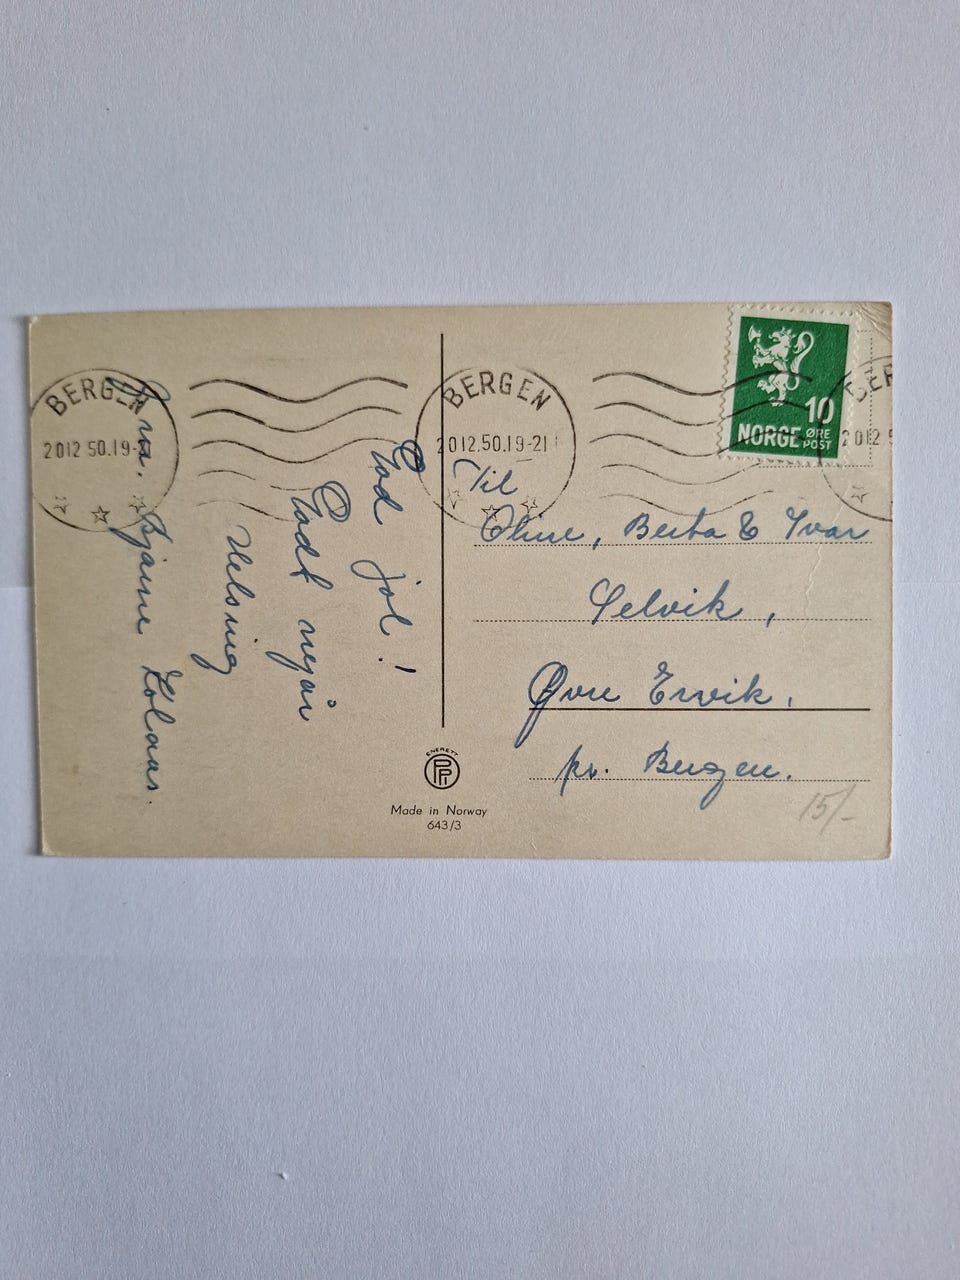 BERGEN
20 12.50.19-2
BERGEN
20 12.50.19-21
BER
20 12 5
10
NORGE ØRE
POST
God jol!
Godt nyår
Helsing
Bjarne Kolaas.
Til
Oline, Berta & Ivar
Selvik,
Øvre Ervik.
pr. Bergen.
15/-
ENERETT
Made in Norway
643/3